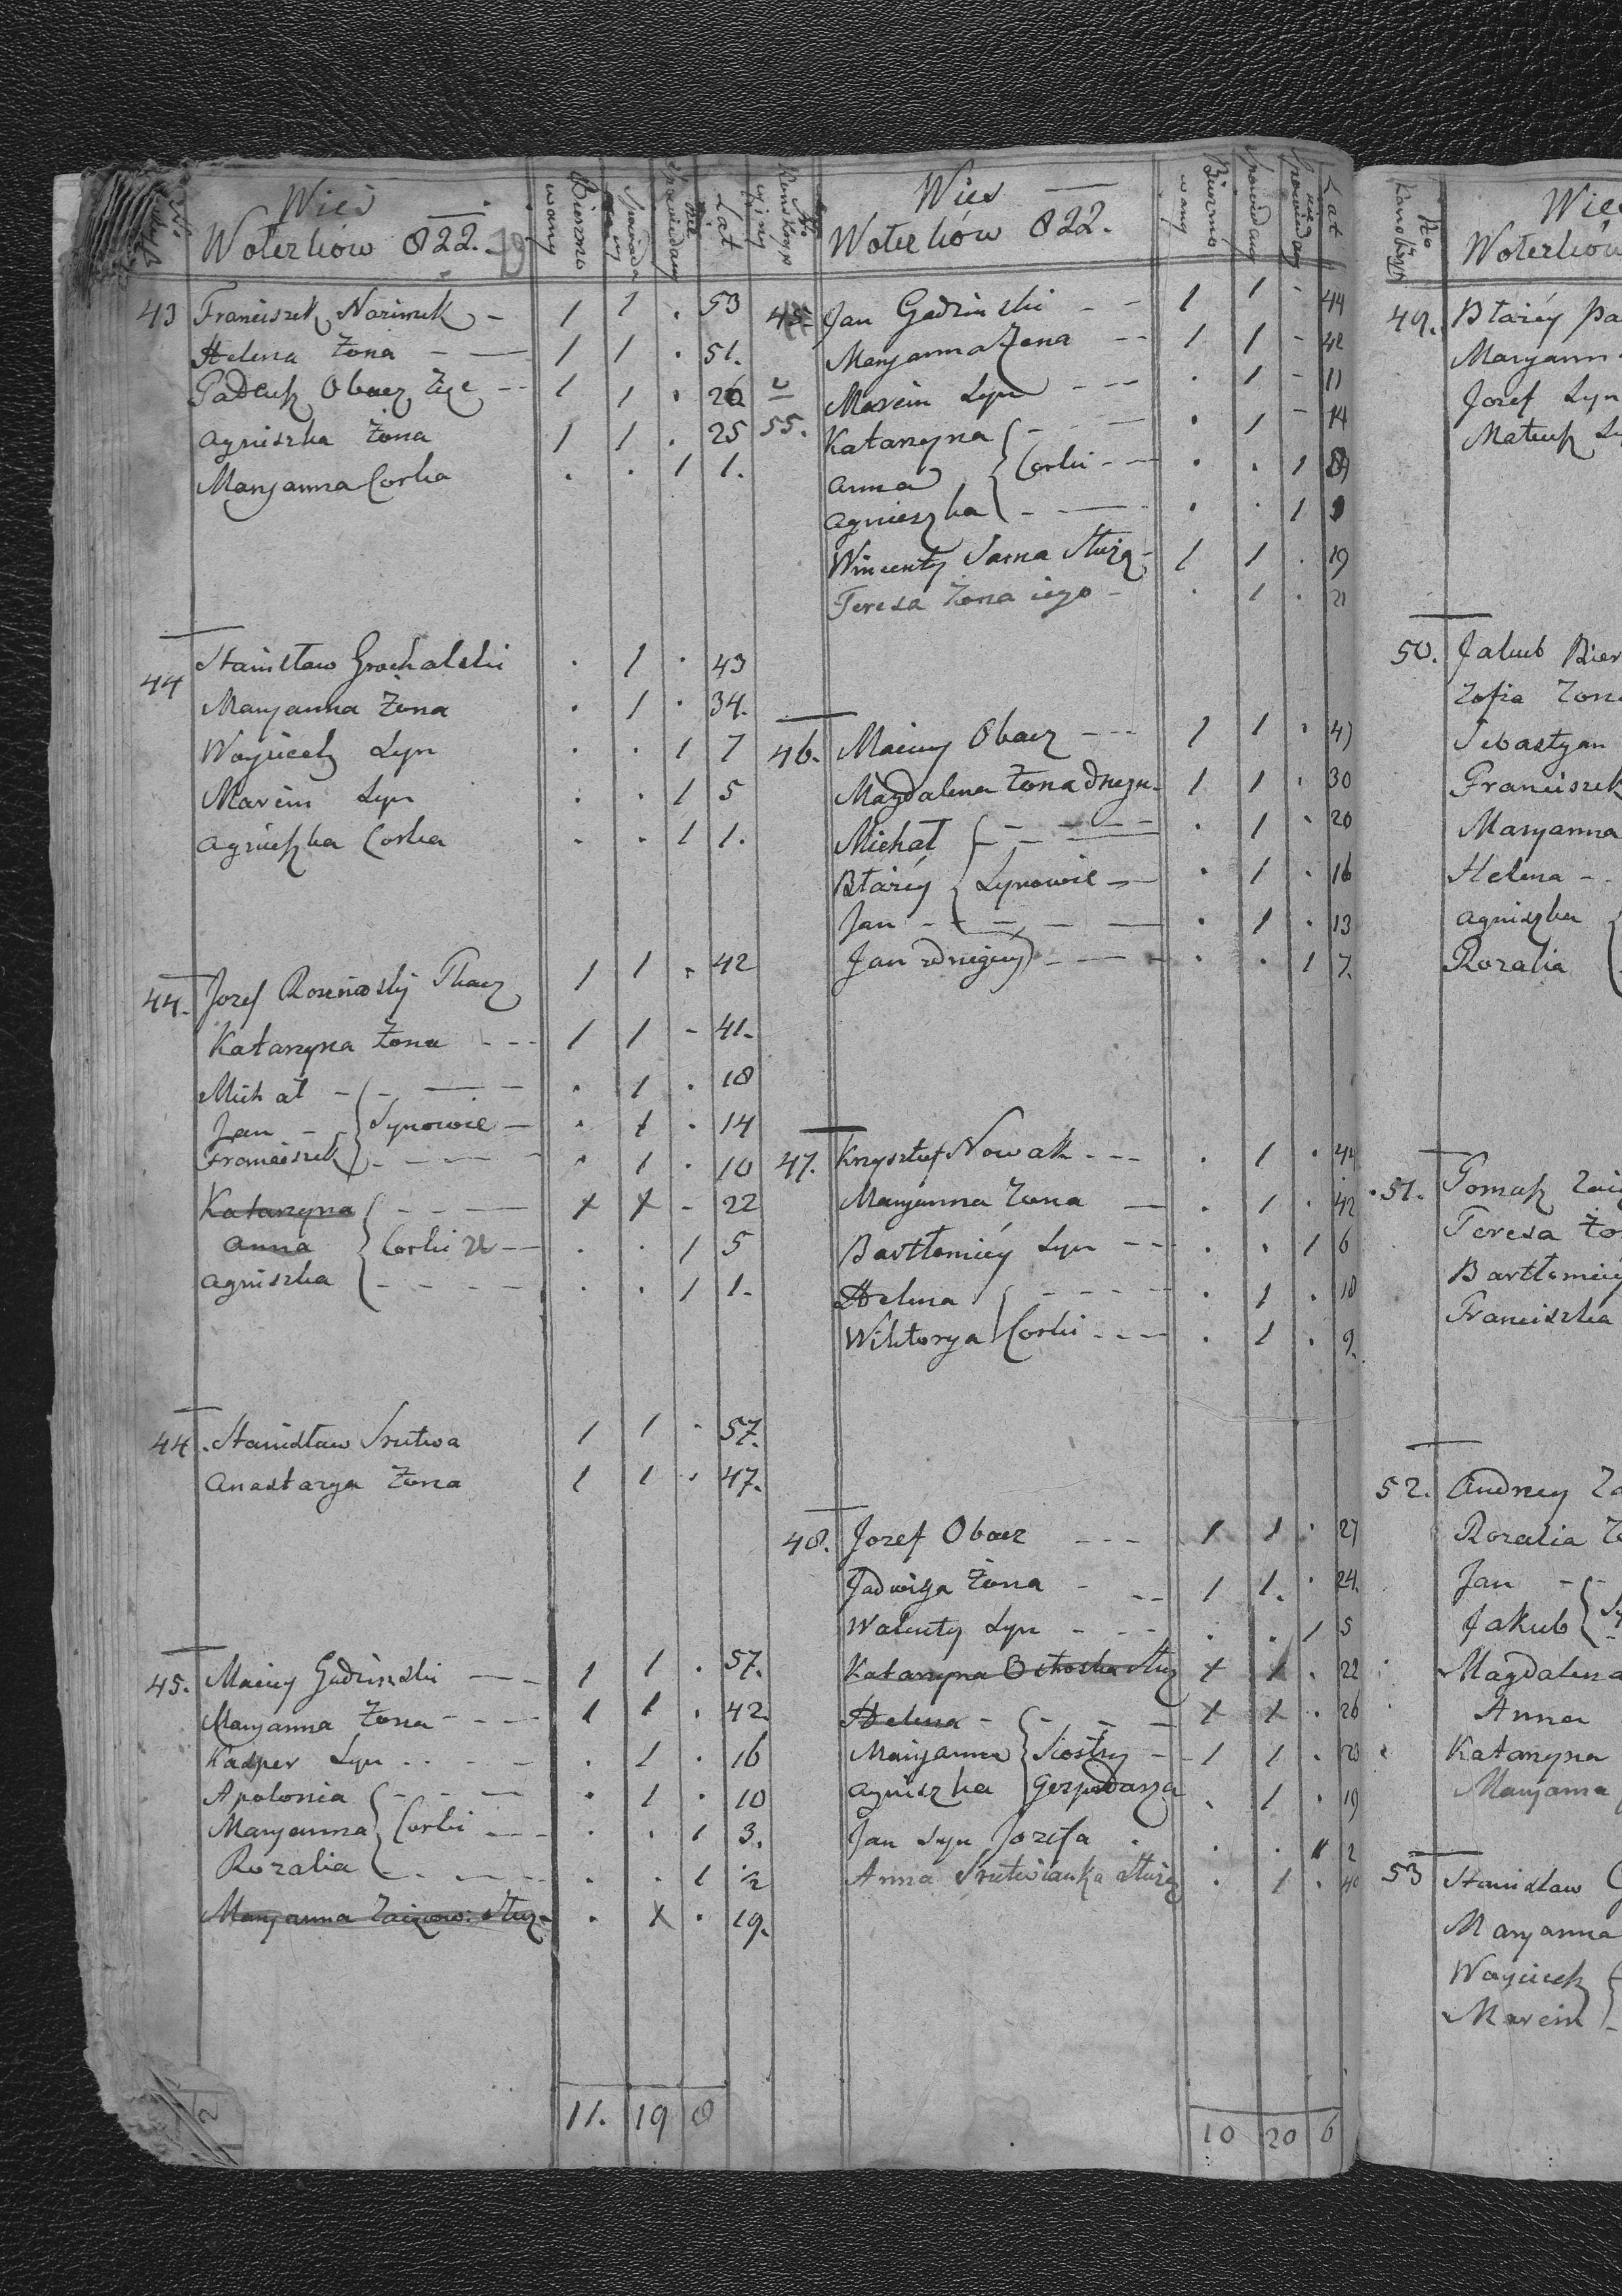 Wieś
Woterków 822.
Bierzmo
wany
Spowiada
ny
nie
Spowiedany
Lat
43 Franciszek Nozinek - 1 1 . 53
Helena Żona - — 1 1 . 51.
Tadeusz Obacz Zięć -- 1 1 . 26
Agniszka Żona 1 1 . 25
Maryanna Corka . . 1 1.
44 Stanisław Grochalski . 1 . 43
Maryanna Żona . 1 . 34.
Woyciech Syn . . 1 7
Marcin Syn . . 1 5
Agnieszka Corka . . 1 1.
44. Jozef Tkacz 1 1 . 42
Katarzyna Żona --- 1 1 - 41.
Michał - . 1 . 18
Jan -- Synowie - . 1 . 14
Franciszek . 1 . 10
Katarzyna x x - 22
Anna Corki 2 -- . . 1 5
Agniszka . . 1 1.
44. Stanisław Srutwa 1 1 . 57.
Anastazya Żona 1 1 . 47.
45. Maciey Gadzinski --- 1 1 . 57.
Maryanna Żona ---- 1 1 . 42
Kasper Syn . 1 . 16
Apolonia . 1 . 10
Maryanna Corki . . 1 3.
Rozalia . . 1 ½
Maryanna Służ. . x . 19.
11. 19 8
No
Konskryp
cyiny
Wieś
Woterków 822.
Bierzmo
wany
Spowiedany
nie
Spowiedany
Lat
45. Jan Gadzinski - - 1 1 - 44
Maryanna Żona -- 1 1 - 42
Marcin Syn --- . 1 - 11
55. Katarzyna . 1 - 14
Anna Corki --- . . 1
Agnieszka . . 1
Wincenty Sarna Służą - 1 1 . 19
Teresa Żona iego - . 1 . 21
46. Maciey Obacz --- 1 1 . 47
Magdalena Żona 1 1 . 30
Michał . 1 . 20
Błażey Synowie -- . 1 . 16
Jan . 1 . 13
Jan . . 1 7.
47. Krzysztof Nowak --- . 1 . 44
Maryanna Żona — . 1 . 42
Bartłomiéy Syn --- . . 1 6
Helena . 1 . 18
Wiktorya Corki ---- . 1 . 9.
48. Jozef Obacz --- 1 1 . 27
Jadwiga Żona - -- 1 1. . 24.
Walenty Syn - -- . . 1 5
Katarzyna Służ x x . 22
Helena - x x . 26
Maryanna Siostry -- 1 1 .
Agniszka Gospodarza . 1 . 19
Jan Syn Jozefa . . . 1 2
Anna Srutwianka Służą . 1 .
10 20 6
No
Konskryp
Wieś
Woterków
49. Błażéy
Maryann
Jozef Syn
Mateusz
50. Jakub
Zofia Żona
Sebastyan
Franciszek
Maryanna
Helena --
Agniszka
Rozalia
51. Tomasz
Teresa
Bartłomiey
Franciszka
52. Andrzey
Rozalia
Jan
Jakub
Magdalena
Anna
Katarzyna
Maryanna
53 Stanisław
Maryanna
Woyciech
Marcin